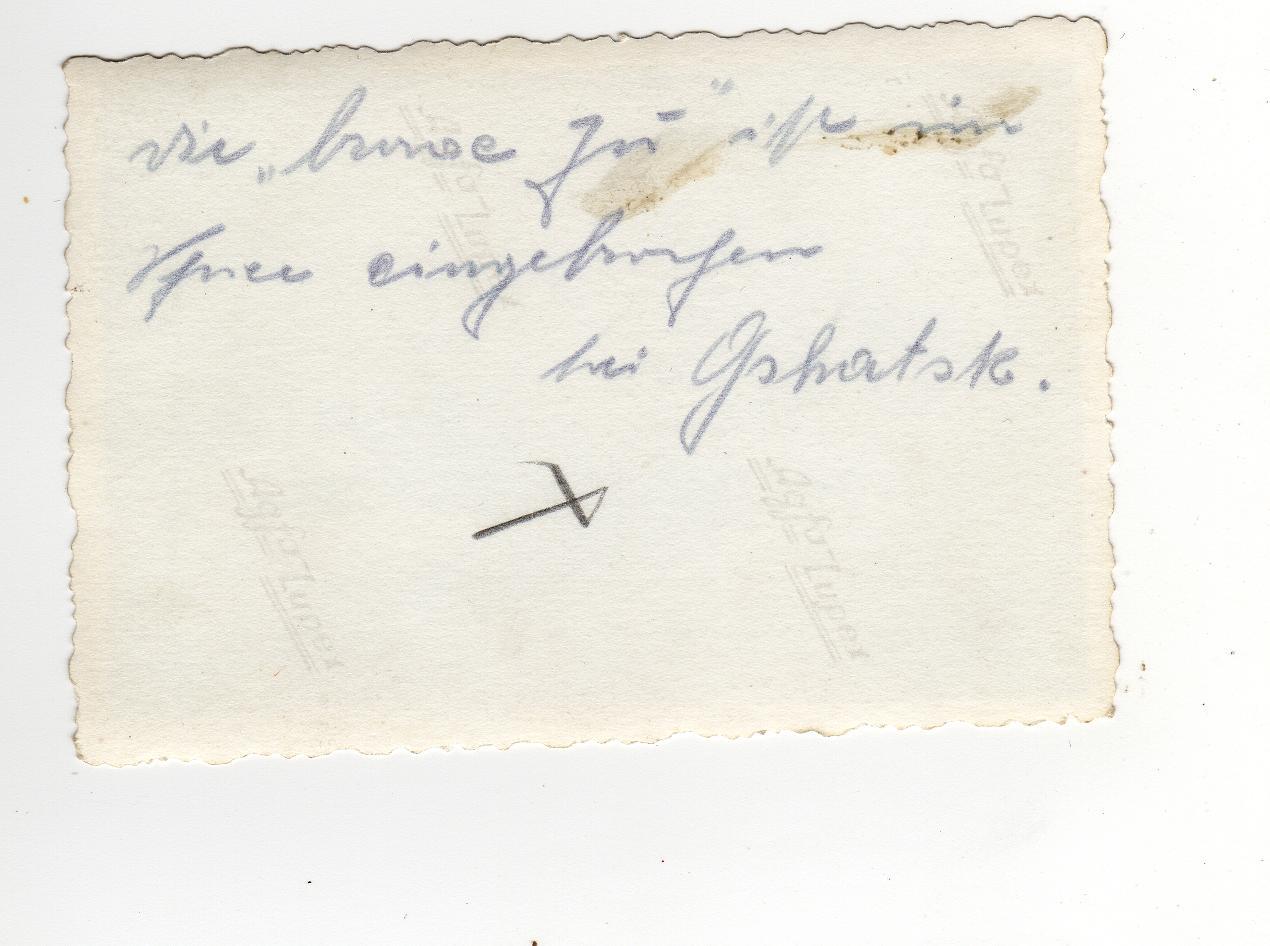 die „brave Ju" ist im
Schnee eingebrochen
bei Gshatsk.
Agfa Lupex
Agfa Lupex
Agfa Lupex
Agfa Lupex